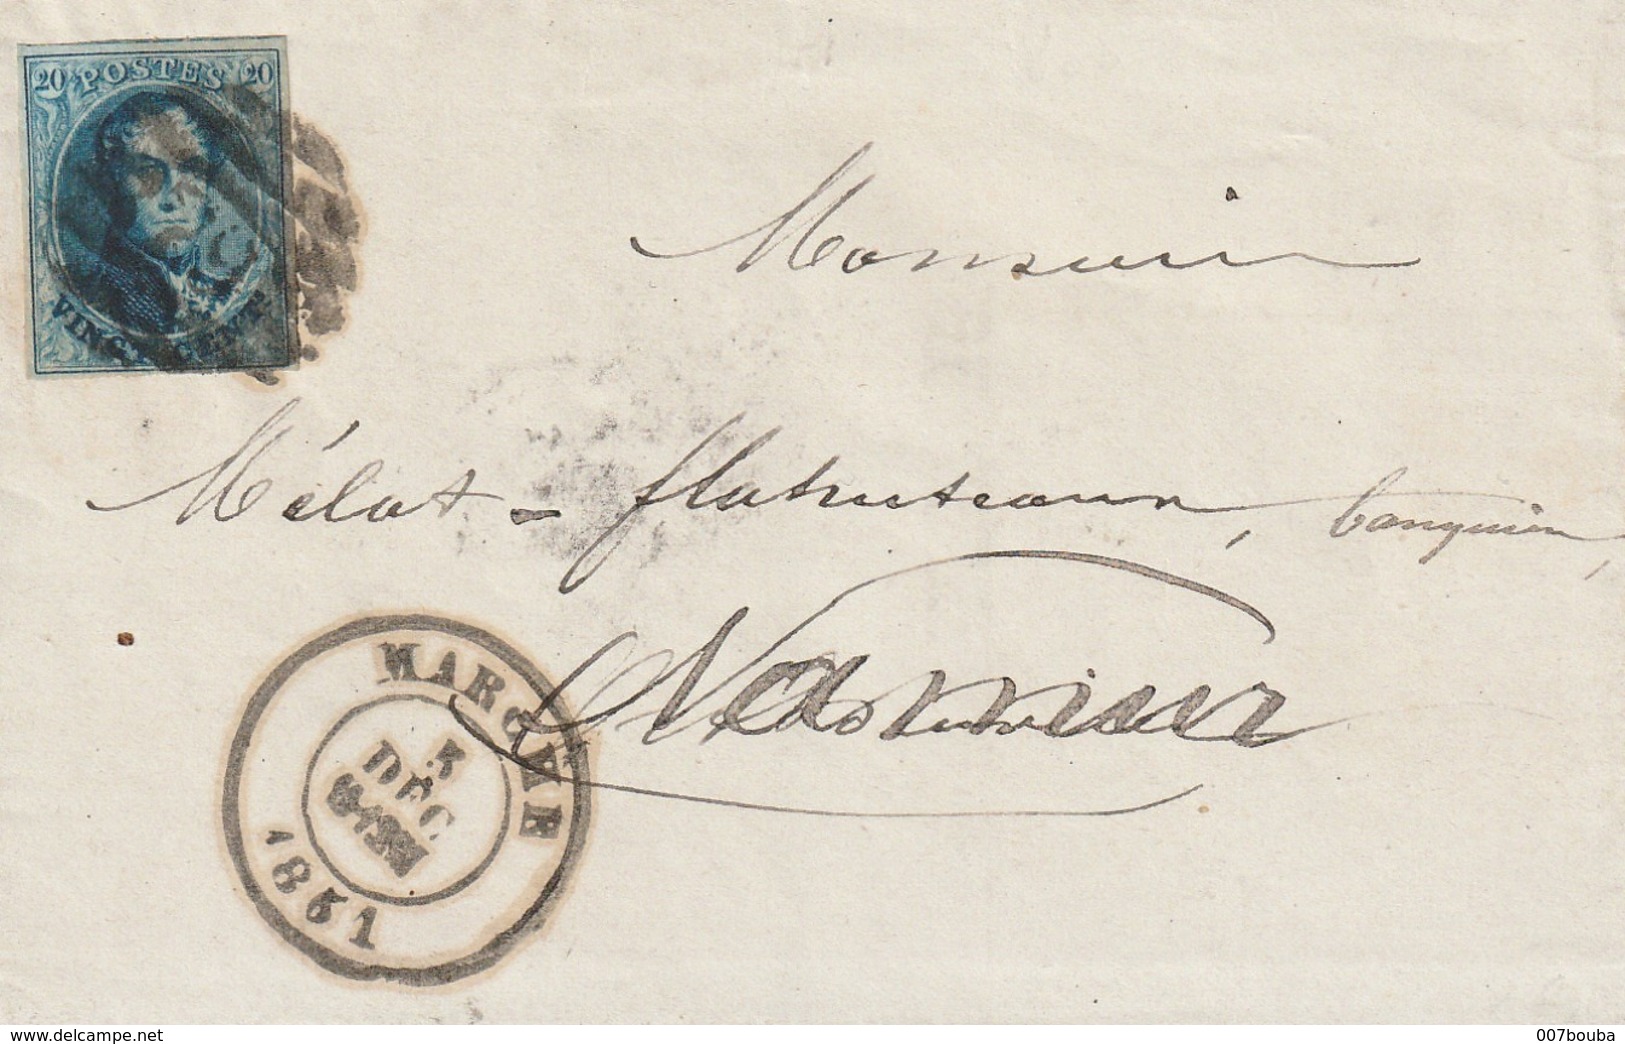 20 POSTES 20
VINGT CENTS
Monsieur
Mélot-flahuteaux, banquier,
Namur
MARCHE
5
DÉC
1861
www.delcampe.net
007bouba